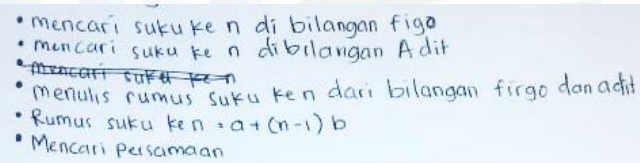 • mencari suku ke n di bilangan figo
• mencari suku ke n di bilangan Adit
• mencari suku ke n
• menulis rumus suku ke n dari bilangan firgo dan adit
• Rumus suku ke n = a + (n-1) b
• Mencari persamaan